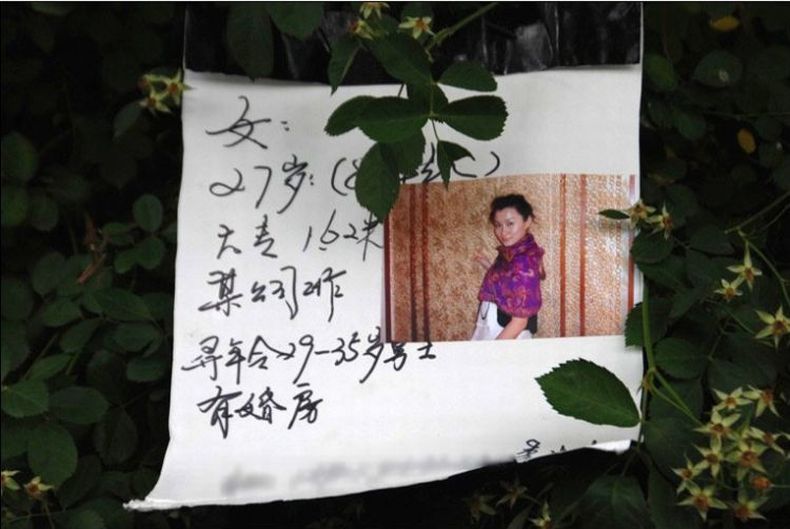 女：
27岁：(
大专 1.62米
某公司工作
寻年令29-35岁男士
有婚房